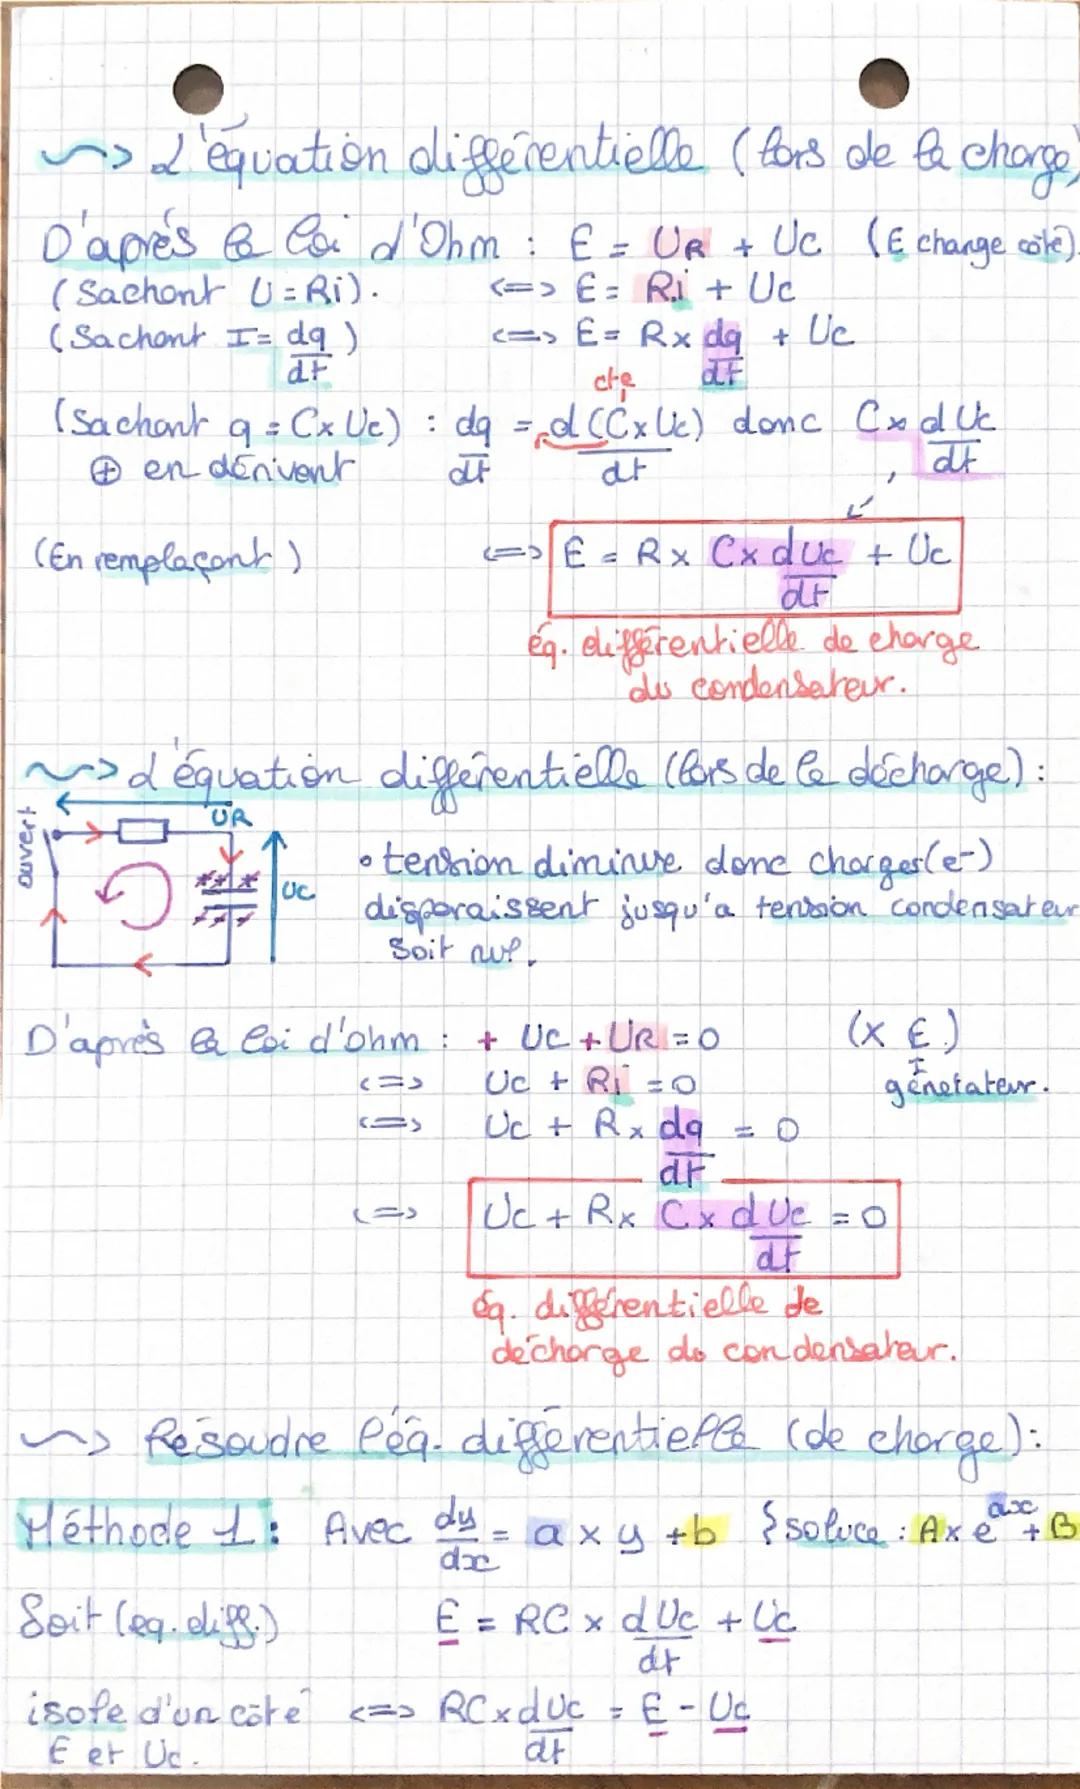 ~> L'équation différentielle (lors de la charge)
D'après la loi d'Ohm : E = UR + Uc (E change côté).
(Sachant U = Ri). <=> E = R.i + Uc
(Sachant I = dq/dt) <=> E = R x dq/dt + Uc
cte
(Sachant q = C x Uc) : dq/dt = d(C x Uc)/dt donc C x dUc/dt
⊕ en dérivent
(En remplaçant) <=> E = R x C x dUc/dt + Uc
éq. différentielle de charge
du condensateur.
~> L'équation différentielle (lors de la décharge) :
ouvert
UR
UC
• tension diminue donc charges (e-)
disparaissent jusqu'a tension condensateur
soit nul.
D'après la loi d'ohm : + Uc + UR = 0 (x E.)
générateur.
<=> Uc + Ri = 0
<=> Uc + R x dq/dt = 0
<=> Uc + R x C x dUc/dt = 0
éq. différentielle de
décharge du condensateur.
~> Résoudre l'éq. différentielle (de charge) :
Méthode 1 : Avec dy/dx = a x y + b {soluce : A x e^ax + B
Soit (eq. diff.) E = RC x dUc/dt + Uc
isole d'un côté <=> RC x dUc/dt = E - Uc
E et Uc.